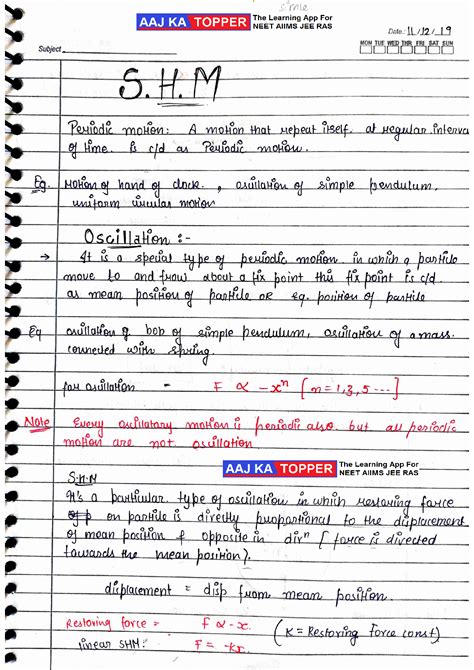 simle
AAJ KA TOPPER The Learning App For
NEET AIIMS JEE RAS
Date: 11/12/19
MON TUE WED THR FRI SAT SUN
Subject
S.H.M
Periodic motion: A motion that repeat itself at regular interva
of time. is c/d as Periodic motion.
Eg. Motion of hand of clock. , oscillation of simple pendulum,
uniform circular motion
Oscillation :-
→ It is a special type of periodic motion in which a partile
move to and frow about a fix point this fix point is c/d
as mean position of partile OR eq. position of partile
Eg oscillation of bob of simple pendulum, oscillation of a mass
connected with spring.
for oscillation = F ∝ -xⁿ [n=1,3,5 ---]
Note Every oscillatary motion is periodic also but all periodic
motion are not oscillation
AAJ KA TOPPER The Learning App For
NEET AIIMS JEE RAS
S.H.M
It's a particular type of oscillation in which restoring force
on partile is directly propostional to the displacement
of mean position & opposite in dirⁿ [force is divected
towards the mean position).
displacement = disp from mean position.
Restoring force = F ∝ -x.
linear SHM: F = -kx. (K = Restoring force const)